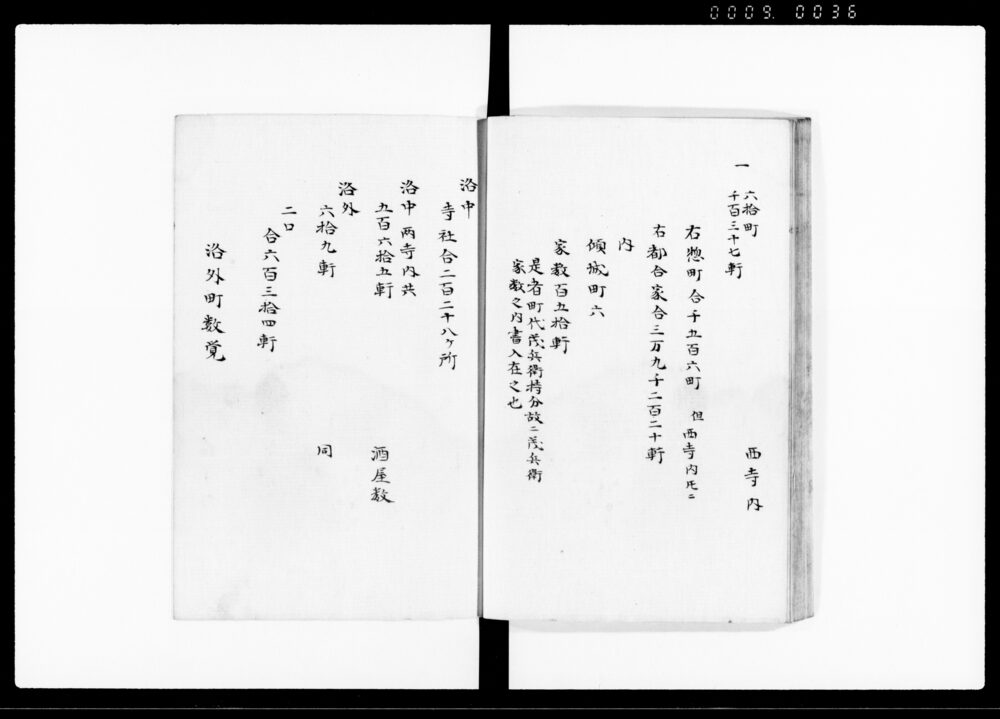 0009. 0036
一 六拾町
千百三十七軒 西寺内
右惣町合千五百六町 但西寺内
右都合家合三万九千二百二十軒
内
傾城町六
家数百五拾軒
是者町代茂兵衛持分故ニ茂兵衛
家数之内書入在之也
洛中
寺社合二百二十八ヶ所
洛中両寺内共
九百六拾五軒 酒屋数
洛外
六拾九軒 同
二口
合六百三拾四軒
洛外町数覚